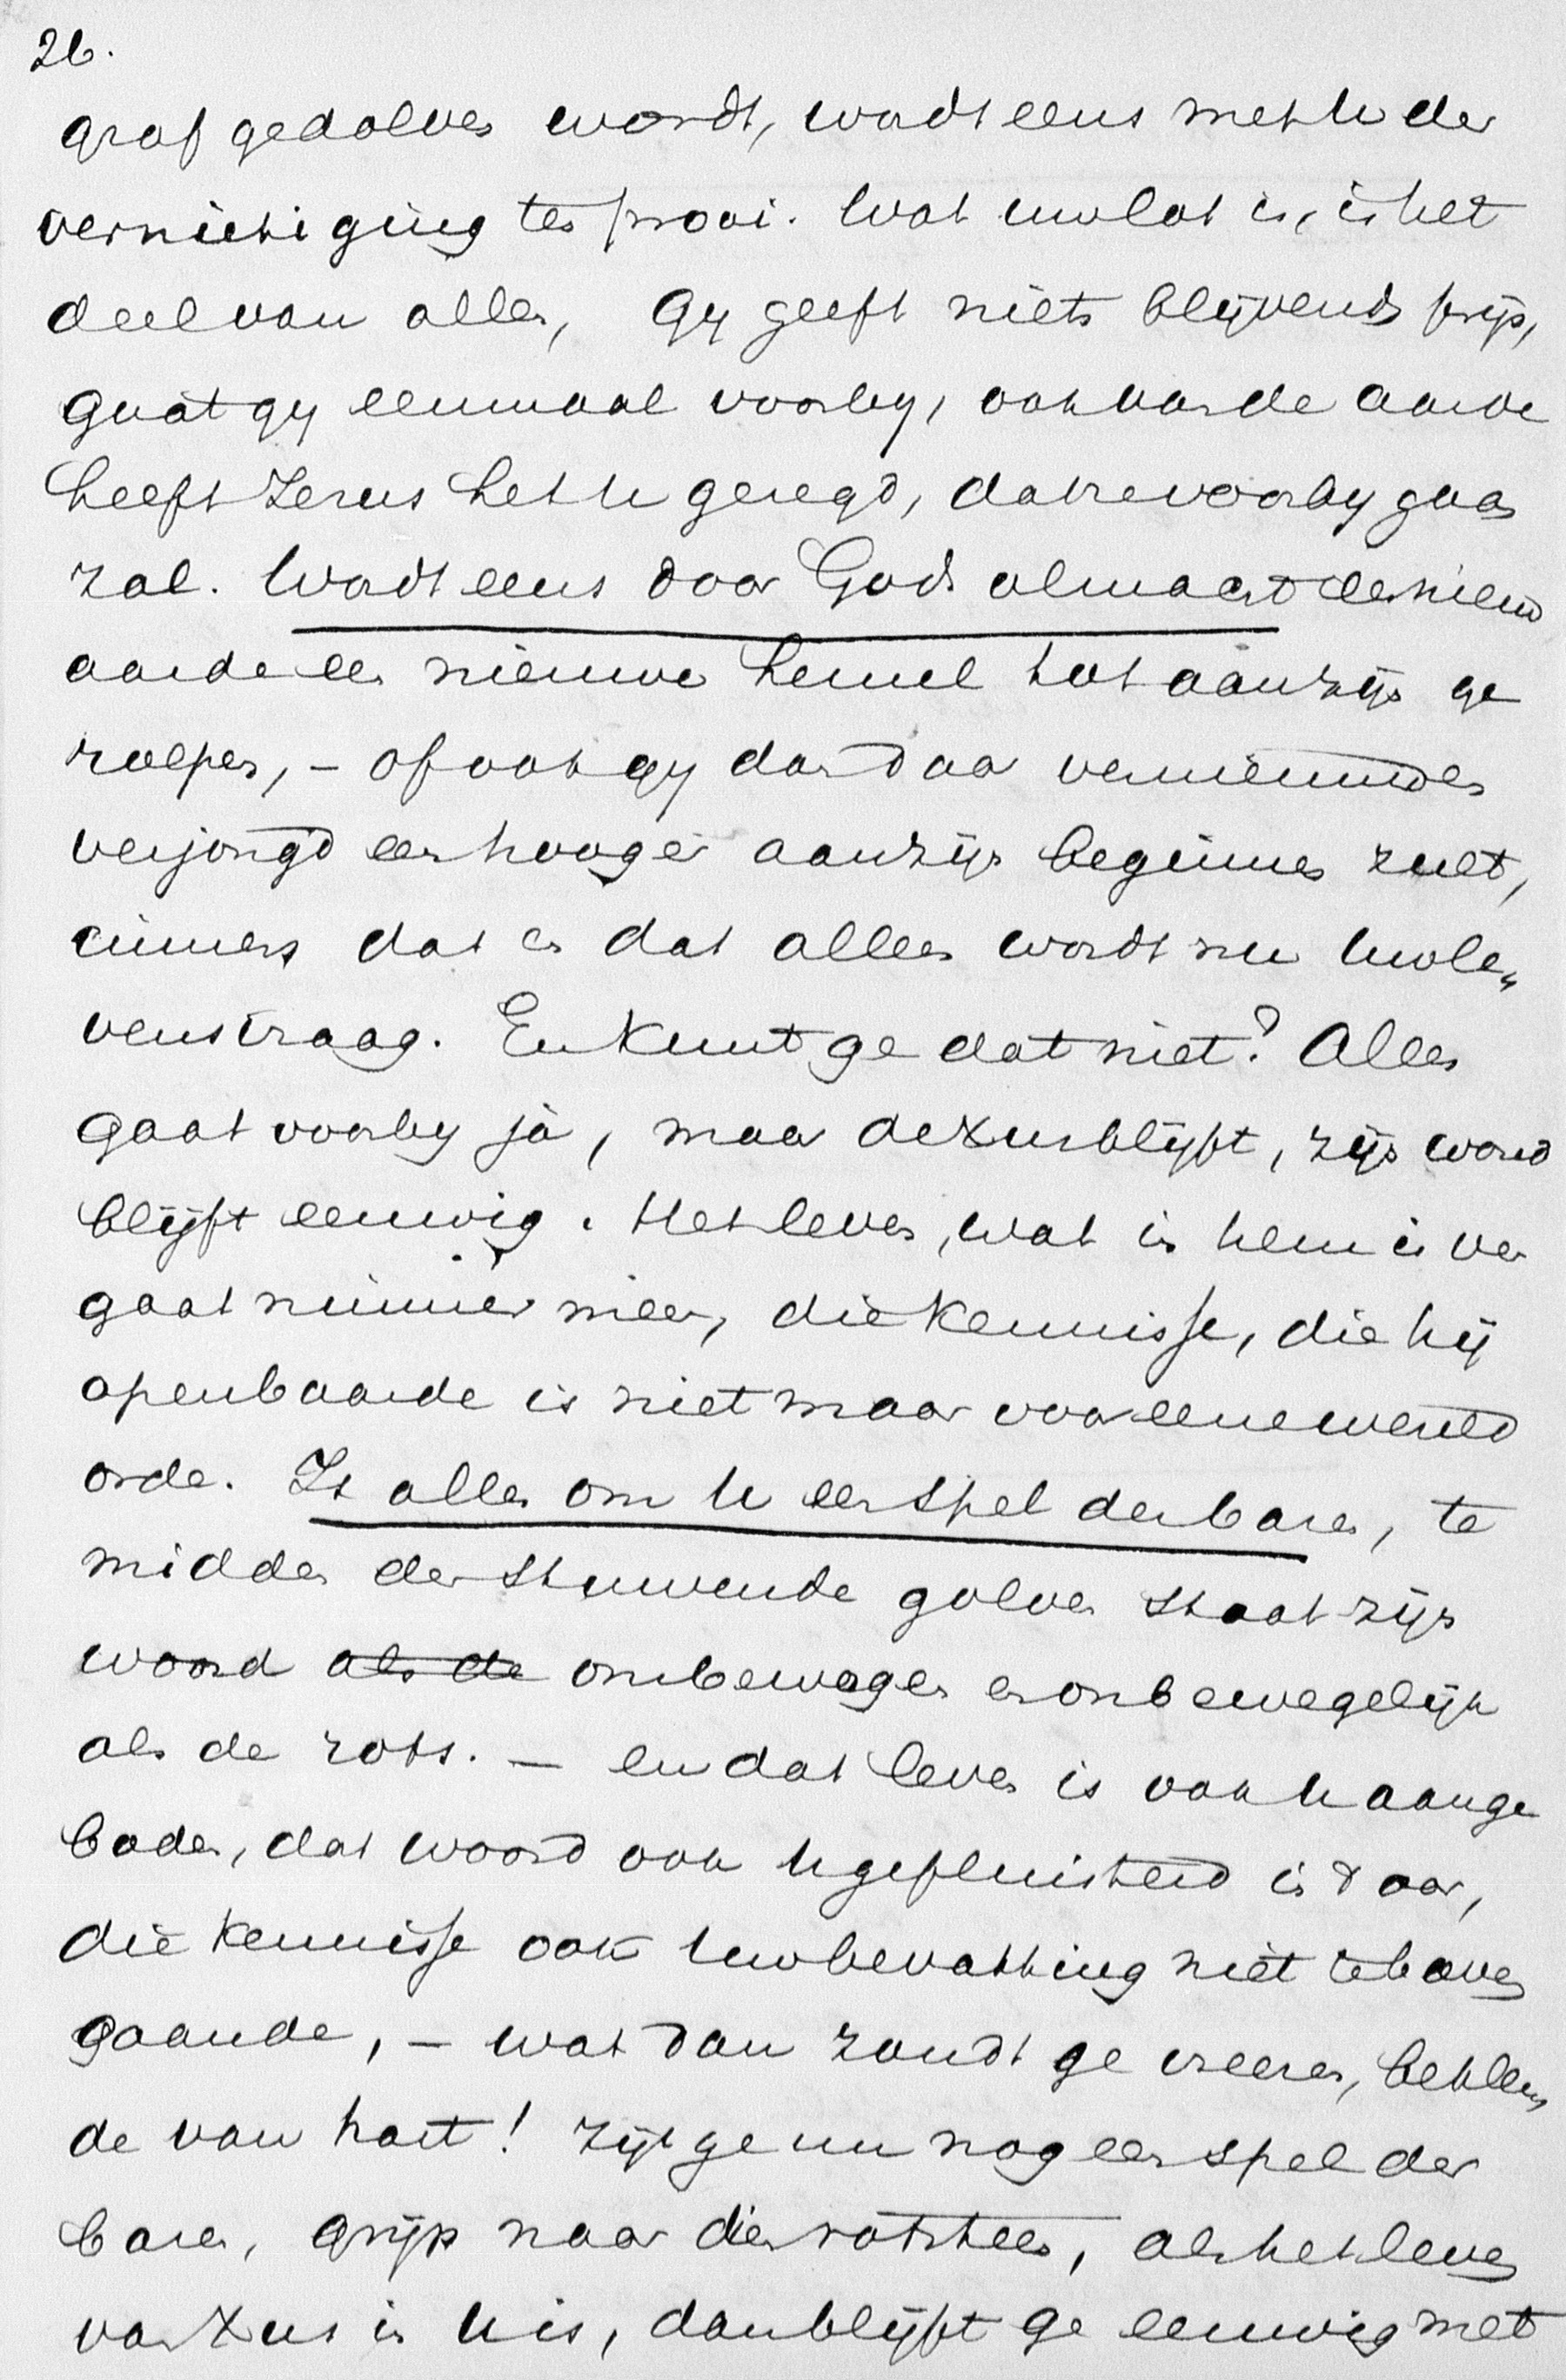 26.
graf gedolven wordt, wordt eens met U der
vernietiging ten prooi. Wat uw lot is, is het
deel van allen, Gy geeft niets blijvends prijs,
gaat gy eenmaal voorby, ook van de aarde
heeft Jezus het U gezegd, dat ze voorby gaan
zal. Wordt eens door Gods almacht een nieuwe
aarde een nieuwe hemel tot aanzijn ge
roepen, – of ook gy dan daar vernieuwd en
verjongd een hooger aanzijn beginnen zult,
immers dat en dat alleen wordt nu Uw le„
vensvraag. En kunt ge dat niet? Alles
gaat voorby ja, maar de Xus blijft, zijn woord
blijft eeuwig. Het leven, wat in hem is ver
gaat nimmer meer, die kennisse, die hij
openbaarde is niet maar voor eene wereld
orde. Is alles om U een spel der baren, te
midden der stuwende golven staat zijn
woord als de onbewogen en onbewegelijk
als de rots. – en dat leven is ook U aange
boden, dat woord ook U gefluisterd in 't oor,
die kennisse ook Uw bevatting niet te boven
gaande, – wat dan zoudt ge vreezen, beklem
de van hart! Zijt ge nu nog een spel der
baren, grijp naar dien rotssteen, als het leven
van Xus in U is, dan blijft ge eeuwig met